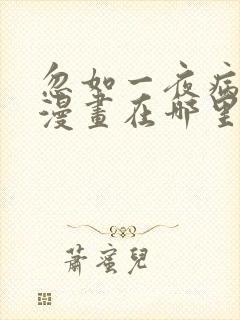 忽如一夜病
漫畫在哪里
蕭蜜兒